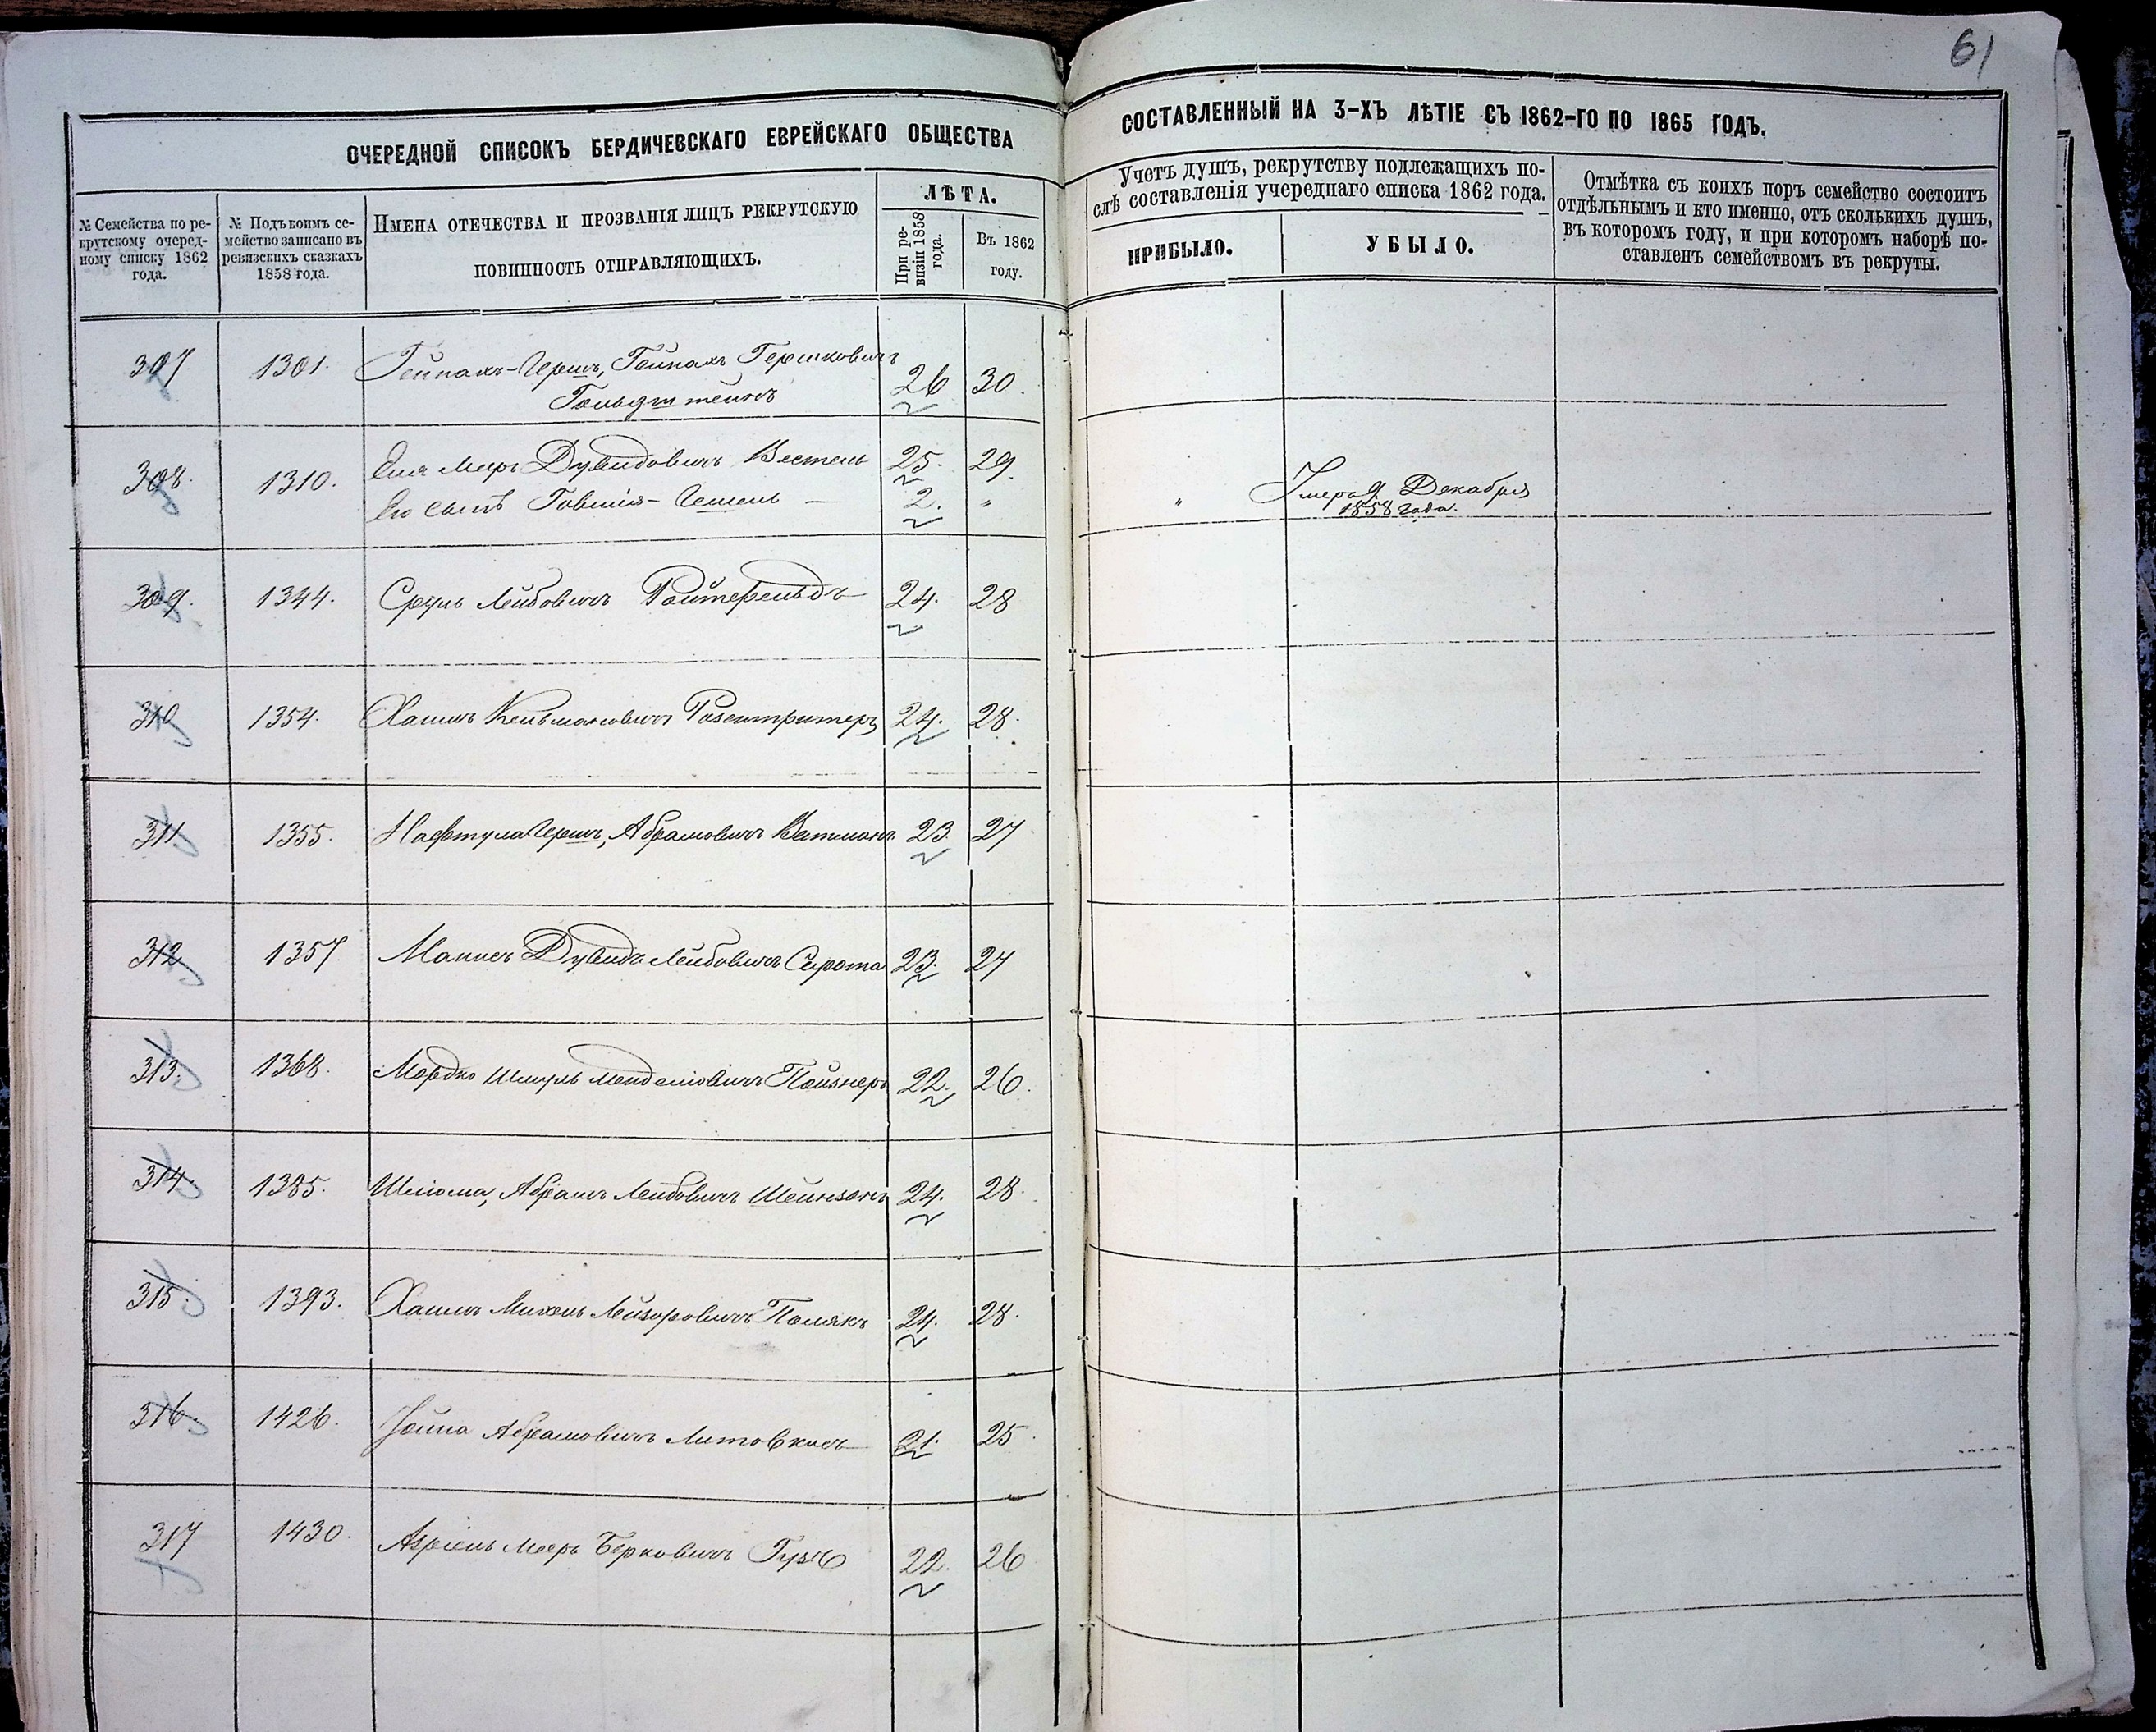 61
ОЧЕРЕДНОЙ СПИСОКЪ БЕРДИЧЕВСКАГО ЕВРЕЙСКАГО ОБЩЕСТВА
СОСТАВЛЕННЫЙ НА 3-ХЪ ЛѢТІЕ СЪ 1862-ГО ПО 1865 ГОДЪ.
№ Семейства по ре-
крутскому очеред-
ному списку 1862
года.
№ Подъ коимъ се-
мейство записано въ
ревизскихъ сказкахъ
1858 года.
Имена отечества и прозванія лицъ рекрутскую
повинность отправляющихъ.
ЛѢТА.
При ре-
визіи 1858
года.
Въ 1862
году.
Учетъ душъ, рекрутству подлежащихъ по-
слѣ составленія учереднаго списка 1862 года.
ПРИБЫЛО.
УБЫЛО.
Отмѣтка съ коихъ поръ семейство состоитъ
отдѣльнымъ и кто именно, отъ сколькихъ душъ,
въ котором году, и при котором наборѣ по-
ставленъ семействомъ въ рекруты.
307 1301. Гейнахъ-Гершъ, Гейнахъ Гершковичъ
Гольдштейнъ 26 30.
308. 1310. Еля Меръ Дувидовичъ 25. 29.
Его сынъ 2. " " Умеръ 9 Декабря
1858 года.
309. 1344. Сруль Лейбовичъ Ройтефельдъ 24. 28
310 1354. Хаимъ Кельмановичъ 24. 28.
311. 1355. Нафтула Гершъ, Абрамовичъ 23. 27
312 1357 Манисъ Дувидъ Лейбовичъ Сирота 23. 27
313. 1368. Мордко Шмуль Менделіовичъ Пойзнеръ 22. 26.
314. 1385. Шліома, Абрамъ Лейбовичъ Шейнзонъ 24. 28.
315. 1393. Хаимъ Михель Лейзоровичъ Полякъ 24. 28.
316. 1426. Іойна Абрамовичъ 21. 25.
317 1430. Азріель Мееръ Берковичъ 22. 26